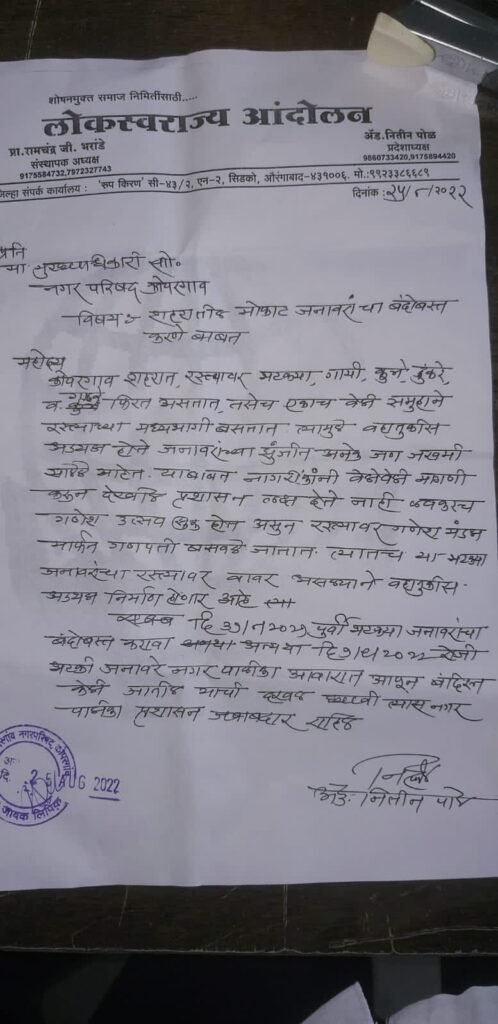 शोषनमुक्त समाज निमिर्तीसाठी.....
लोकस्वराज्य आंदोलन
प्रा.रामचंद्र जी. भरांडे
संस्थापक अध्यक्ष
9175584732,7972327743
अ‍ॅड.नितीन पोळ
प्रदेशाध्यक्ष
9860733420,9175894420
जिल्हा संपर्क कार्यालय : 'रुप किरण' सी-४३/२, एन-२, सिडको, औरंगाबाद-४३१००६. मो.:९९२३३८६६८९
दिनांक : २५/८/२०२२
प्रति
मा. मुख्याधिकारी सो.
नगर परिषद कोपरगाव
विषय :- शहरातील मोकाट जनावरांचा बंदोबस्त
करणे बाबत
महोदय
कोपरगाव शहरात, रस्त्यावर भटक्या, गायी, कुत्रे, डुंकरे,
व गाढवे फिरत असतात, तसेच एकाच वेळी समुहाने
रस्त्याच्या मध्यभागी बसतात त्यामुळे वाहतुकीस
अडथळा होने जनावरांच्या झुंजीत अनेक जण जखमी
झाले आहेत. याबाबत नागरीकांनी वेळोवेळी मागणी
करून देखील प्रशासन लक्ष देत नाही लवकरच
गणेश उत्सव सुरू होत असुन रस्त्यावर गणेश मंडळ
मार्फत गणपती बसवले जातात. त्यातच या भटक्या
जनावरांच्या रस्त्यावर वावर असल्याने वाहतुकीस
अडथळा निर्माण होणार आहे
दि ३१/८/२०२२ पुर्वी भटक्या जनावरांचा
बंदोबस्त करावा अन्यथा दि १/९/२०२२ रोजी
भटकी जनावरे नगर पालीका आवारात आणून बंदिस्त
केली जातील याची दखल घ्यावी त्यास नगर
पालीका प्रशासन जबाबदार राहिल
अ‍ॅड. नितीन पोळ
नगरपरिषद, कोपरगाव
25 AUG 2022
आवक लिपिक